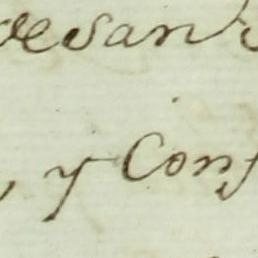 desan
, y Conf